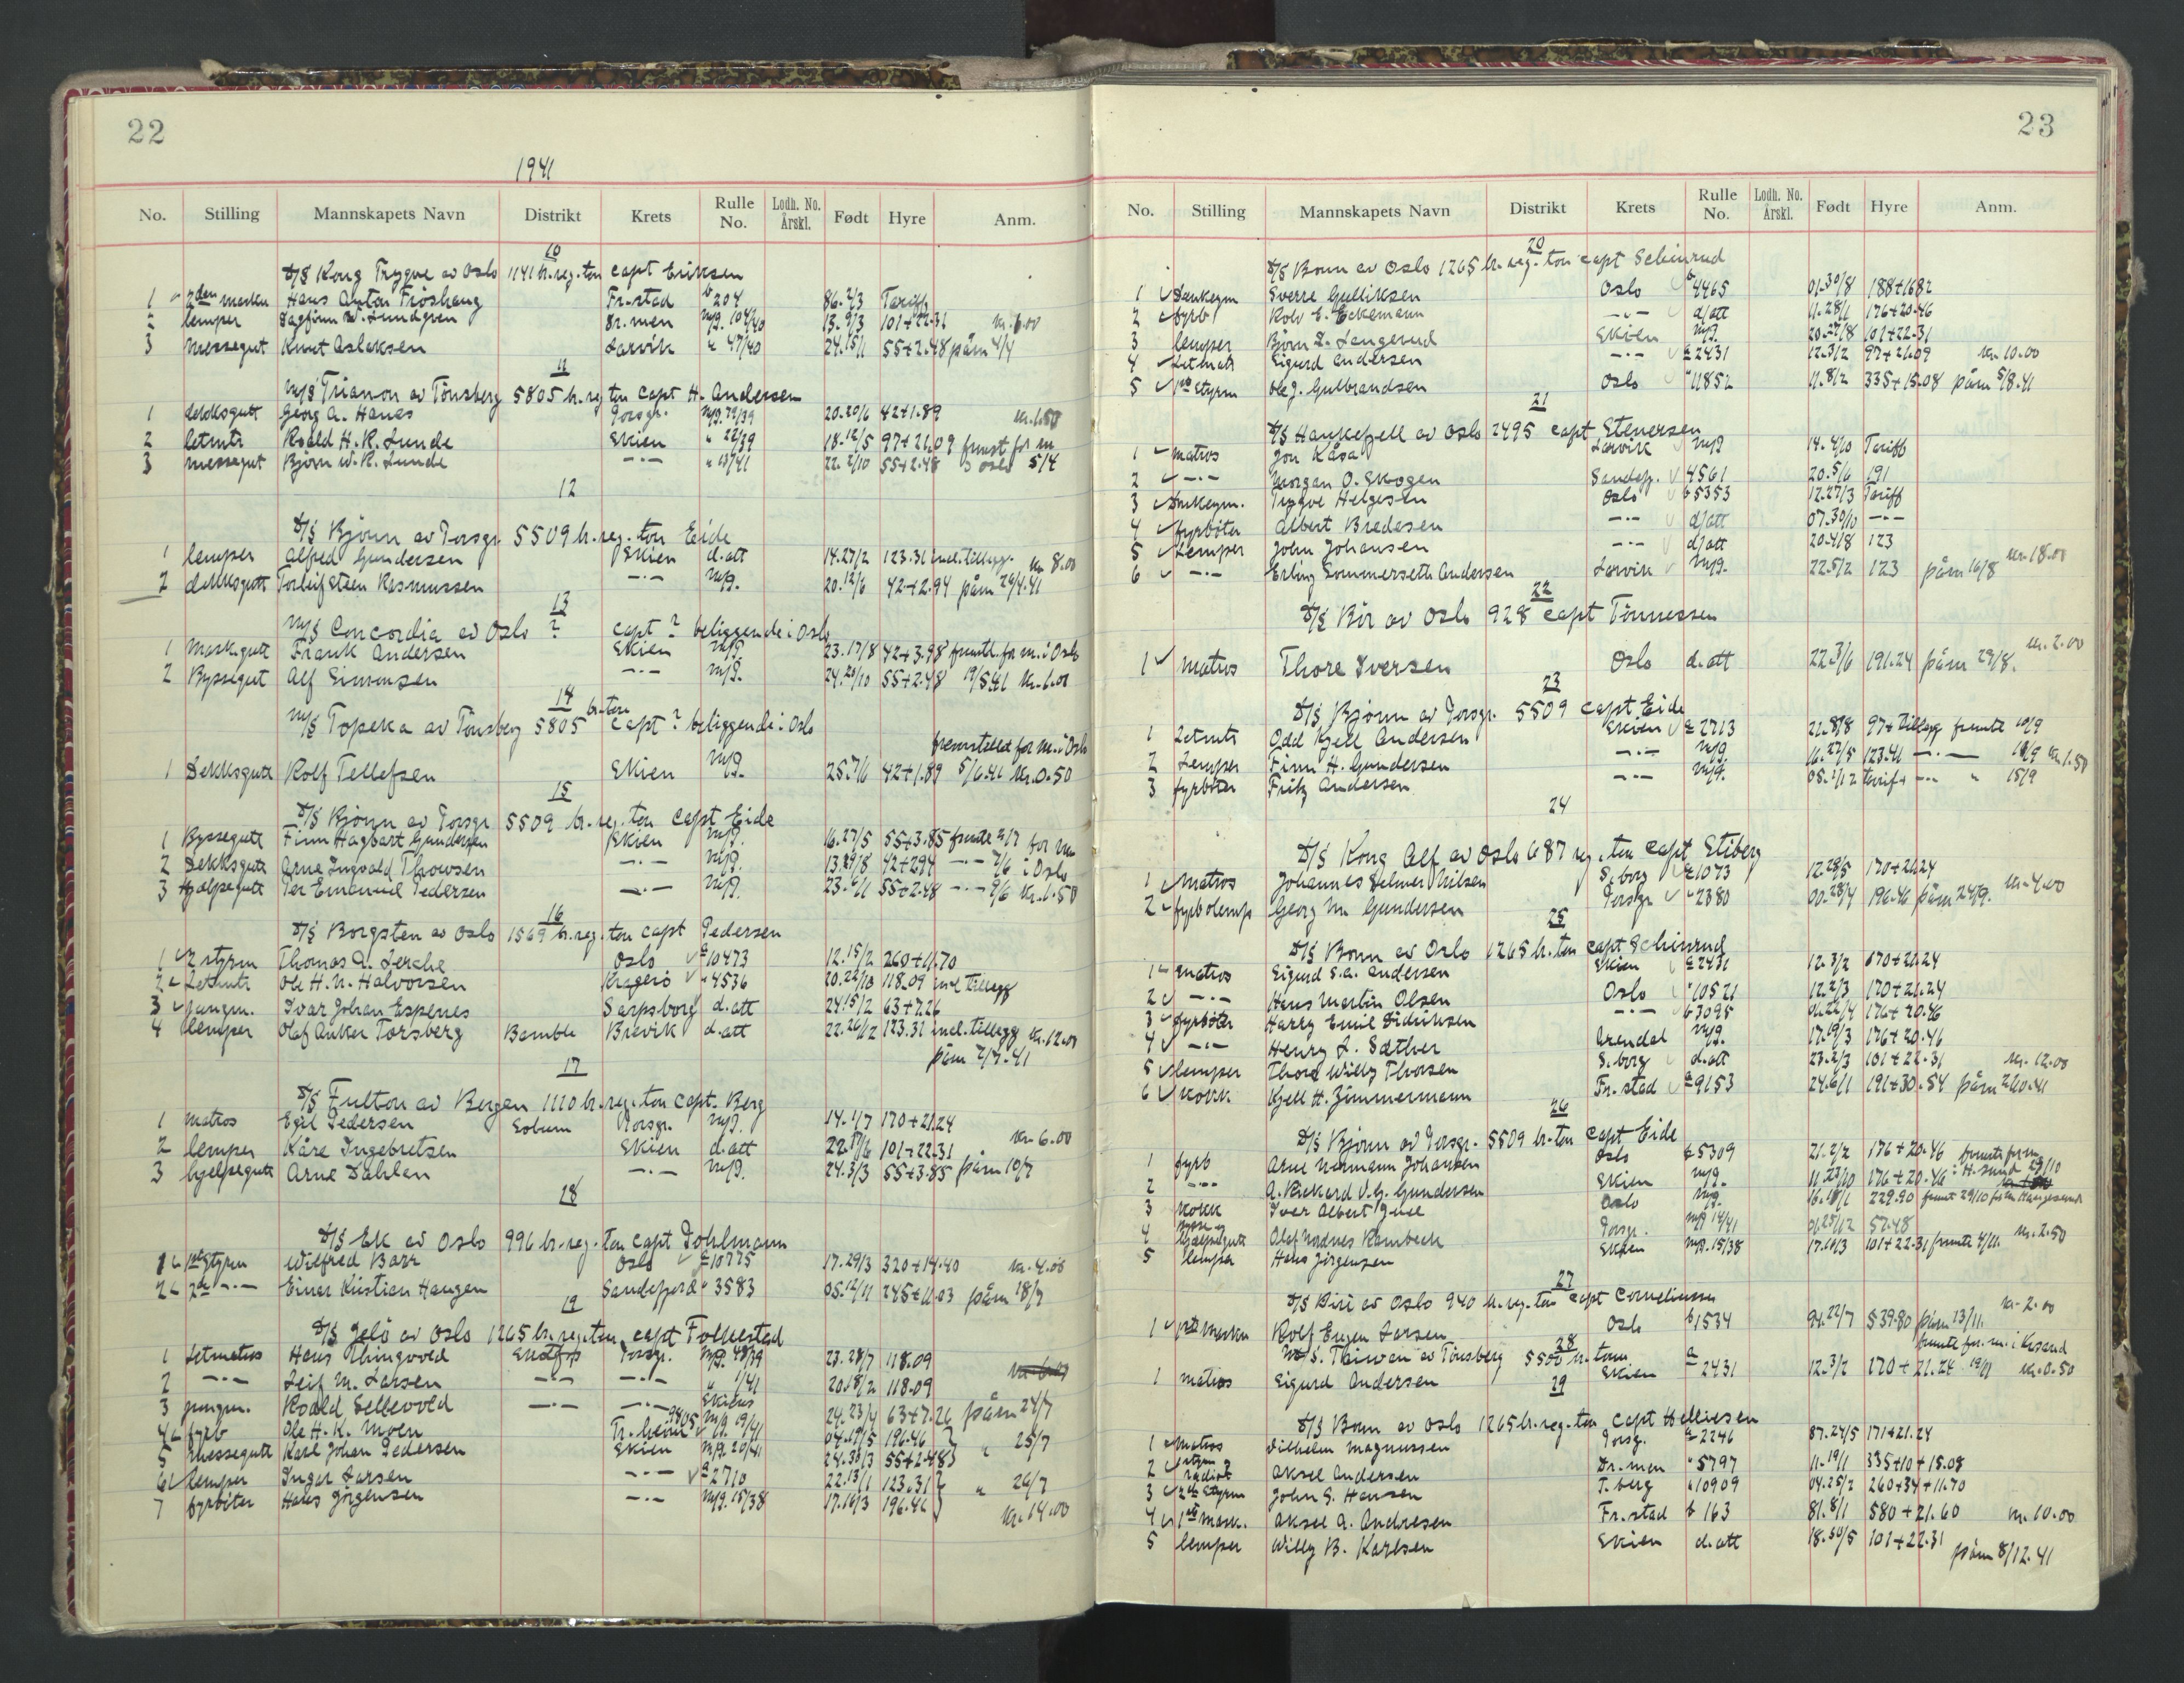 22
1941
No. Stilling Mannskapets Navn Distrikt Krets Rulle No. Lodh. No. Årskl. Født Hyre Anm.
10
D/S Kong Trygve av Oslo 1141 br.reg.ton capt Eriksen
1 2den maskn Hans Anton Fröshaug Fr.stad b 204 86.2/3 Tariff
2 lemper Dagfinn W. Lundgren Dr.men m/p. 104/40 13.9/3 101+22.31 kr. 6.00
3 messegut Knut Aslaksen Larvik " 47/40 24.15/1 55+2.48 påm 4/4
11
M/S Trianon av Tönsberg 5805 br.reg ton capt H. Andersen
1 dekksgutt Georg A. Hanes Porsgr. m/p. 79/39 20.20/6 42+1.89 kr. 1.50
2 letmts Roald H. R. Lunde Skien " 22/39 18.12/5 97+21.09 frmst for m
3 messegut Björn W. R. Lunde -"- " 13/41 22.2/10 55+2.48 i Oslo 5/4
12
D/S Bjönn av Porsgr. 5509 br.reg.ton Eide
1 lemper Alfred Gundersen Skien d.att 14.27/2 123.31 incl.tillegg. kr 8.00
2 dekksgutt Torleif Steen Rasmussen -"- m/p. 20.12/6 42+2.94 påm 26/4.41
13
M/S Concordia av Oslo ? capt ? beliggende i Oslo
1 Mask.gutt Frank Andersen Skien m/p. 23.17/8 42+3.98 fremst. for m. i Oslo
2 Byssegut Alf Simonsen -"- m/p. 24.20/10 55+2.48 19/5.41 kr. 6.00
14
M/S Topeka av Tönsberg 5805 br.ton capt ? beliggende i Oslo
fremstilled for m. i Oslo
1 Dekksgutt Rolf Tellefsen Skien m/p. 25.7/6 42+1.89 5/6.41 kr. 0.50
15
D/S Bjönn av Porsgr 5509 br.reg.ton capt Eide
1 Byssegutt Finn Hagbart Gundersen Skien m/p. 16.27/5 55+3.85 frmte 2/7 for m
2 Dekksgutt Arne Ingvald Thowsen -"- m/p. 13.29/8 42+2.94 -"- 7/6 i Oslo
3 Hjælpegutt Per Emanuel Pedersen -"- m/p. 23.6/11 55+2.48 -"- 9/6 kr. 1.50
16
D/S Borgsten av Oslo 1569 br.reg.ton capt Pedersen
1 2 styrm Thomas A. Lerche Oslo a 10473 12.15/2 260+11.70
2 Letmts Ole H. N. Halvorsen Kragerö " 4536 20.22/10 118.09 incl tillegg
3 jungm. Ivar Johan Espenes Sarpsborg d.att 24.15/2 63+7.26
4 lemper Olaf Anker Torsberg Bamble Brevik d.att 22.26/12 123.31 incl. tillegg kr. 12.00
påm 2/7.41
17
D/S Fulton av Bergen 1110 br.reg.ton capt. Berg
1 matros Egil Pedersen Solum Porsgr. m/p. 14.1/7 170+21.24
2 lemper Kåre Ingebretsen Skien d.att 22.17/6 101+22.31 kr. 6.00
3 hjelpegutt Arne Dahlen -"- m/p. 24.3/3 55+3.85 påm 10/7
18
D/S Ek av Oslo 996 br.reg.ton capt Dohlmann
1 1ste styrm Wilfred Barr Oslo a 10775 17.29/3 320+14.40 kr. 4.00
2 2de -"- Einar Kristian Haugen Sandefjord " 3583 05.12/11 245+11.03 påm 18/7
19
D/S Jelö av Oslo 1265 br.reg.ton capt Folkestad
1 Letmatros Hans Thingvold Porsgr. m/p. 48/39 23.28/7 118.09
2 -"- Leif M. Larsen -"- -"- " 1/41 20.18/2 118.09
3 jungm. Roald Sellevold -"- -"- Skiens 24.23/4 63+7.26 påm 24/7
4 fyrb Ole H. K. Moen Tr.heim 9805 m/p. 19/41 04.19/5 196.46
5 Messegutt Karl Johan Pedersen Skien m/p. 20/41 24.30/3 55+2.48 " 25/7
6 lemper Ingar Larsen -"- a 2710 22.13/1 123.31 " 26/7
7 fyrböter Hans Jörgensen -"- m/p. 15/38 17.16/3 196.46 kr. 14.00
23
No. Stilling Mannskapets Navn Distrikt Krets Rulle No. Lodh. No. Årskl. Født Hyre Anm.
20
D/S Bonn av Oslo 1265 br.reg.ton capt Schinrud
1 Donkeym Sverre Gulliksen Oslo b 4465 01.30/8 188+16.82
2 fyrb Rolv E. Eckemann -"- d/att 11.28/1 176+20.46
3 lemper Björn L. Langerud Skien m/p. 20.27/8 101+22.31
4 Letmatr Sigurd Andersen -"- a 2431 12.3/2 97+21.09 kr. 10.00
5 1ste styrm Ole J. Gulbrandsen Oslo " 11852 11.8/2 335+15.08 påm 5/8.41
21
D/S Haukefjell av Oslo 2495 capt Stenersen
1 matros Jon Kåsa Larvik m/p 14.4/10 Tariff
2 -"- Morgan O. Skogen Sandefj. 4561 20.5/6 191
3 Donkeym. Trygve Helgesen Oslo b 5353 12.27/3 Tariff
4 fyrböter Albert Bredesen -"- d/att 07.30/10 -"-
5 Lemper John Johansen -"- d/att 20.4/8 123
6 -"- Erling Sommerseth Andersen Larvik m/p. 22.5/2 123 påm 16/8 kr. 18.00
22
D/S Bir av Oslo 928 capt Tönnessen
1 matros Thore Iversen Oslo d.att 22.3/6 191.24 påm 29/8. kr. 2.00
23
D/S Bjönn av Porsgr. 5509 capt Eide
1 Letmts Odd Kjell Andersen Skien a 2713 21.8/8 97+tillegg frmte 10/9
2 Lemper Finn H. Gundersen -"- m/p. 16.27/5 123.41 -"- 10/9 kr 1.50
3 fyrböter Fritz Andersen -"- m/p. 05.1/12 tariff -"- 15/9
24
D/S Kong Alf av Oslo 687 reg.ton capt Stiberg
1 Matros Johannes Selmer Nilsen S.borg a 1073 12.28/5 170+21.24
2 fyrb o lemp Georg M. Gundersen Porsgr " 2380 00.28/4 196.46 påm 24/9. kr. 4.00
25
D/S Bonn av Oslo 1265 br.ton capt Schinrud
1 matros Sigurd S.A. Andersen Skien a 2431 12.3/2 170+21.24
2 -"- Hans Martin Olsen Oslo " 10521 12.2/3 170+21.24
3 fyrböter Harry Emil Didriksen -"- b 3095 06.22/4 176+20.46
4 -"- Henry L. Sæther Arendal m/p. 17.19/3 176+20.46
5 lemper Thord Willy Thorsen S.borg d.att 23.2/3 101+22.31 kr. 12.00
6 kokk Kjell H. Zimmermann Fr.stad a 9153 24.6/1 191+30.54 påm 2/10.41
26
D/S Bjönn av Porsgr. 5509 br.ton capt Eide
1 fyrb Arne Normann Johansen Oslo b 5309 21.2/2 176+20.46 frmte for m
2 -"- A. Rickard V. G. Gundersen Skien m/p. 11.23/10 176+20.46 i H.sund 29/10
3 kokk Iver Albert Juel Oslo m/p. 16.18/1 229.90 frmst 29/10 for m Haugesund
4 Bysse og hjælpegutt Olaf Nordnes Rambeck Porsgr. m/p 14/41 21.25/12 57.48 kr. 2.50
5 lemper Hans Jörgensen Skien m/p. 15/38 17.16/3 101+22.31 frmte 4/11.
27
D/S Biri av Oslo 940 br.reg.ton capt Corneliussen
1 1ste maskn Rolf Eugen Larsen Oslo b 1534 94.22/7 539.80 påm 13/11. kr. 2.00
28
M/S. Taiwan av Tönsberg 5500 br. tonn frmte for m. i Krsand
1 matros Sigurd Andersen Skien a 2431 12.3/2 170+21.24 19/11 kr. 0.50
29
D/S Bonn av Oslo 1265 br.reg.ton capt Helliesen
1 Matros Wilhelm Magnussen Porsgr. a 2246 87.24/5 171+21.24
2 styrm radiot Aksel Andersen Dr.men " 5797 11.19/1 335+10+15.08
3 2de styrm John S. Hansen T.berg " 10909 04.25/2 260+34+11.70
4 1ste mask. Aksel A. Andresen Fr.stad b 163 81.8/1 580+21.60 kr. 10.00
5 lemper Willy B. Karlsen Skien d.att 18.30/5 101+22.31 påm 8/12.41